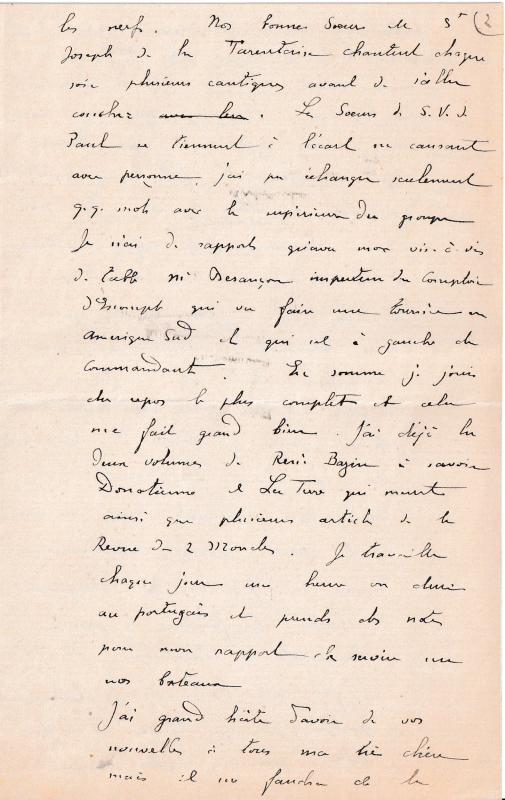 2
les nerfs. Nos bonnes Soeurs de St
Joseph de la Tarentaise chantent chaque
soir plusieurs cantiques avant de s'aller
coucher. Les Soeurs de S.V. de
Paul se tiennent à l'écart ne causant
avec personne, j'ai pu échanger seulement
q.q. mots avec la supérieure du groupe
Je n'ai de rapports qu'avec mon vis-à-vis
de table Mr Besançon inspecteur du Comptoir
d'Escompte qui va faire une tournée en
Amérique Sud et qui est à gauche du
Commandant. En somme je jouis
du repos le plus complet et cela
me fait grand bien. J'ai déjà lu
deux volumes de René Bazin à savoir
Donatienne et La Terre qui meurt
ainsi que plusieurs articles de la
Revue des 2 Mondes. Je travaille
chaque jour une heure ou deux
au portugais et prends des notes
pour mon rapport de service sur
nos bateaux
J'ai grand hâte d'avoir de vos
nouvelles à tous ma très chère
mais il me faudra de la